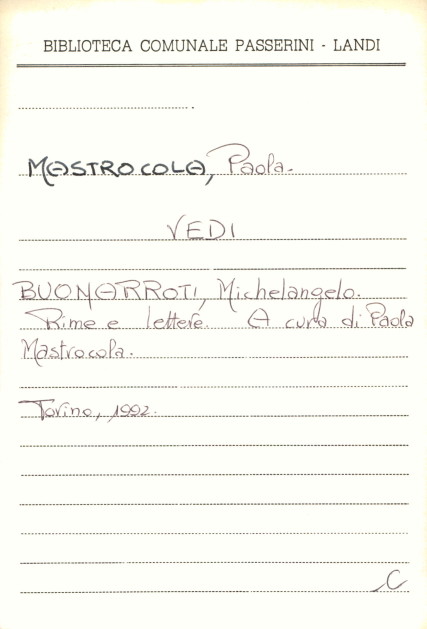 BIBLIOTECA COMUNALE PASSERINI - LANDI
MASTROCOLA, Paola.
VEDI
BUONARROTI, Michelangelo.
Rime e lettere. A cura di Paola
Mastrocola.
Torino, 1992.
C